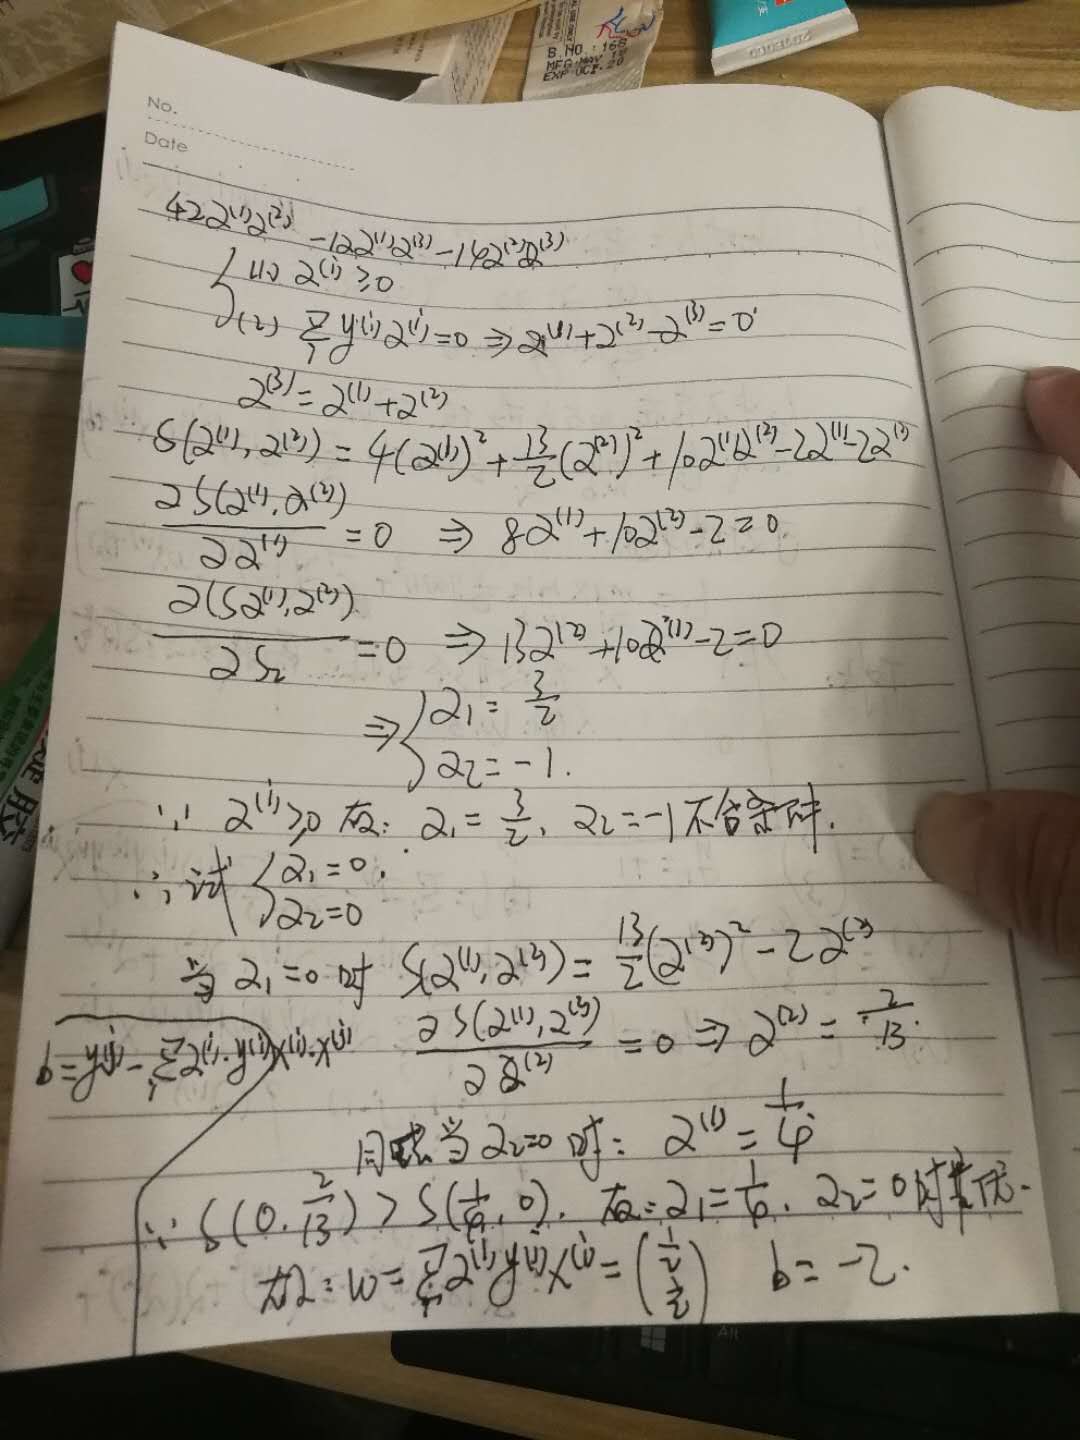 B.NO.:16
MFG MAY.1
EXP OCT.20
No.
Date
42α⁽¹⁾α⁽²⁾ -12α⁽¹⁾α⁽³⁾ -14α⁽²⁾α⁽³⁾
(1) α⁽ⁱ⁾ ≥0
(2) Σᵢ y⁽ⁱ⁾α⁽ⁱ⁾=0 ⇒ α⁽¹⁾+α⁽²⁾-α⁽³⁾=0
α⁽³⁾=α⁽¹⁾+α⁽²⁾
S(α⁽¹⁾, α⁽²⁾) = 4(α⁽¹⁾)² + 13/2(α⁽²⁾)² + 10α⁽¹⁾α⁽²⁾ -2α⁽¹⁾-2α⁽²⁾
∂S(α⁽¹⁾, α⁽²⁾)/∂α⁽¹⁾ = 0 ⇒ 8α⁽¹⁾+10α⁽²⁾-2=0
∂(Sα⁽¹⁾, α⁽²⁾)/∂S₂ =0 ⇒ 13α⁽²⁾+10α⁽¹⁾-2=0
⇒ { α₁ = 3/2
α₂ = -1.
∵ α⁽ⁱ⁾≥0 故: α₁ = 3/2, α₂ = -1 不合条件.
∴ 试 { α₁=0.
α₂=0
当 α₁=0 时 S(α⁽¹⁾, α⁽²⁾) = 13/2(α⁽²⁾)² - 2α⁽²⁾
b=y⁽ʲ⁾-Σᵢα⁽ⁱ⁾·y⁽ⁱ⁾x⁽ⁱ⁾·x⁽ʲ⁾
∂S(α⁽¹⁾, α⁽²⁾)/∂α⁽²⁾ = 0 ⇒ α⁽²⁾ = 2/13.
当 α₂=0 时: α⁽¹⁾ = 1/4
∵ S(0, 2/13) > S(1/4, 0). 故: α₁=1/4, α₂=0 时
故: w = Σᵢα⁽ⁱ⁾y⁽ⁱ⁾x⁽ⁱ⁾ = (1/2 1/2) b = -2.
Alt